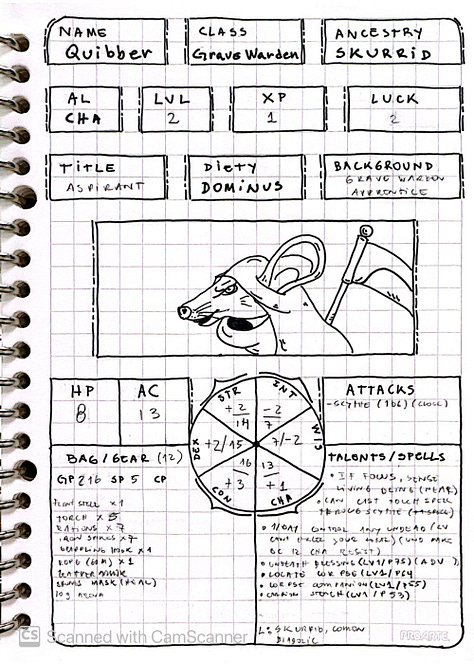 NAME
Quibber
CLASS
Grave Warden
ANCESTRY
SKURRID
AL
CHA
LVL
2
XP
1
LUCK
2
TITLE
ASPIRANT
DIETY
DOMINUS
BACKGROUND
GRAVE WARDEN
APPRENTICE
HP
8
AC
13
STR
+2
14
INT
-2
7
WIS
7/-2
CHA
13
+1
CON
16
+3
DEX
+2/15
ATTACKS
-SCYTHE (1d6) (CLOSE)
BAG/GEAR (12)
GP 216 SP 5 CP
TORCH x 5
RATIONS x 7
IRON SPIKES x 7
GRAPPLING HOOK x 1
ROPE (60ft) x 1
LEATHER
MASK
TALENTS/SPELLS
• IF FOCUS, SENSE
LIVING BEING (NEAR)
• CAN CAST TOUCH SPELL
SCYTHE
• 1/DAY CONTROL ANY UNDEAD/LV
(CAN'T EXCEED YOUR LEVEL)(UND MAKE
DC 12 CHA RESIST)
(LV1/P75) (ADV)
• LOCATE (LV1/P64
COMPANION (LV1/P55)
STENCH (LV1/P53)
L: SKURRID, COMON
DIABOLIC
CS Scanned with CamScanner
PROARTE